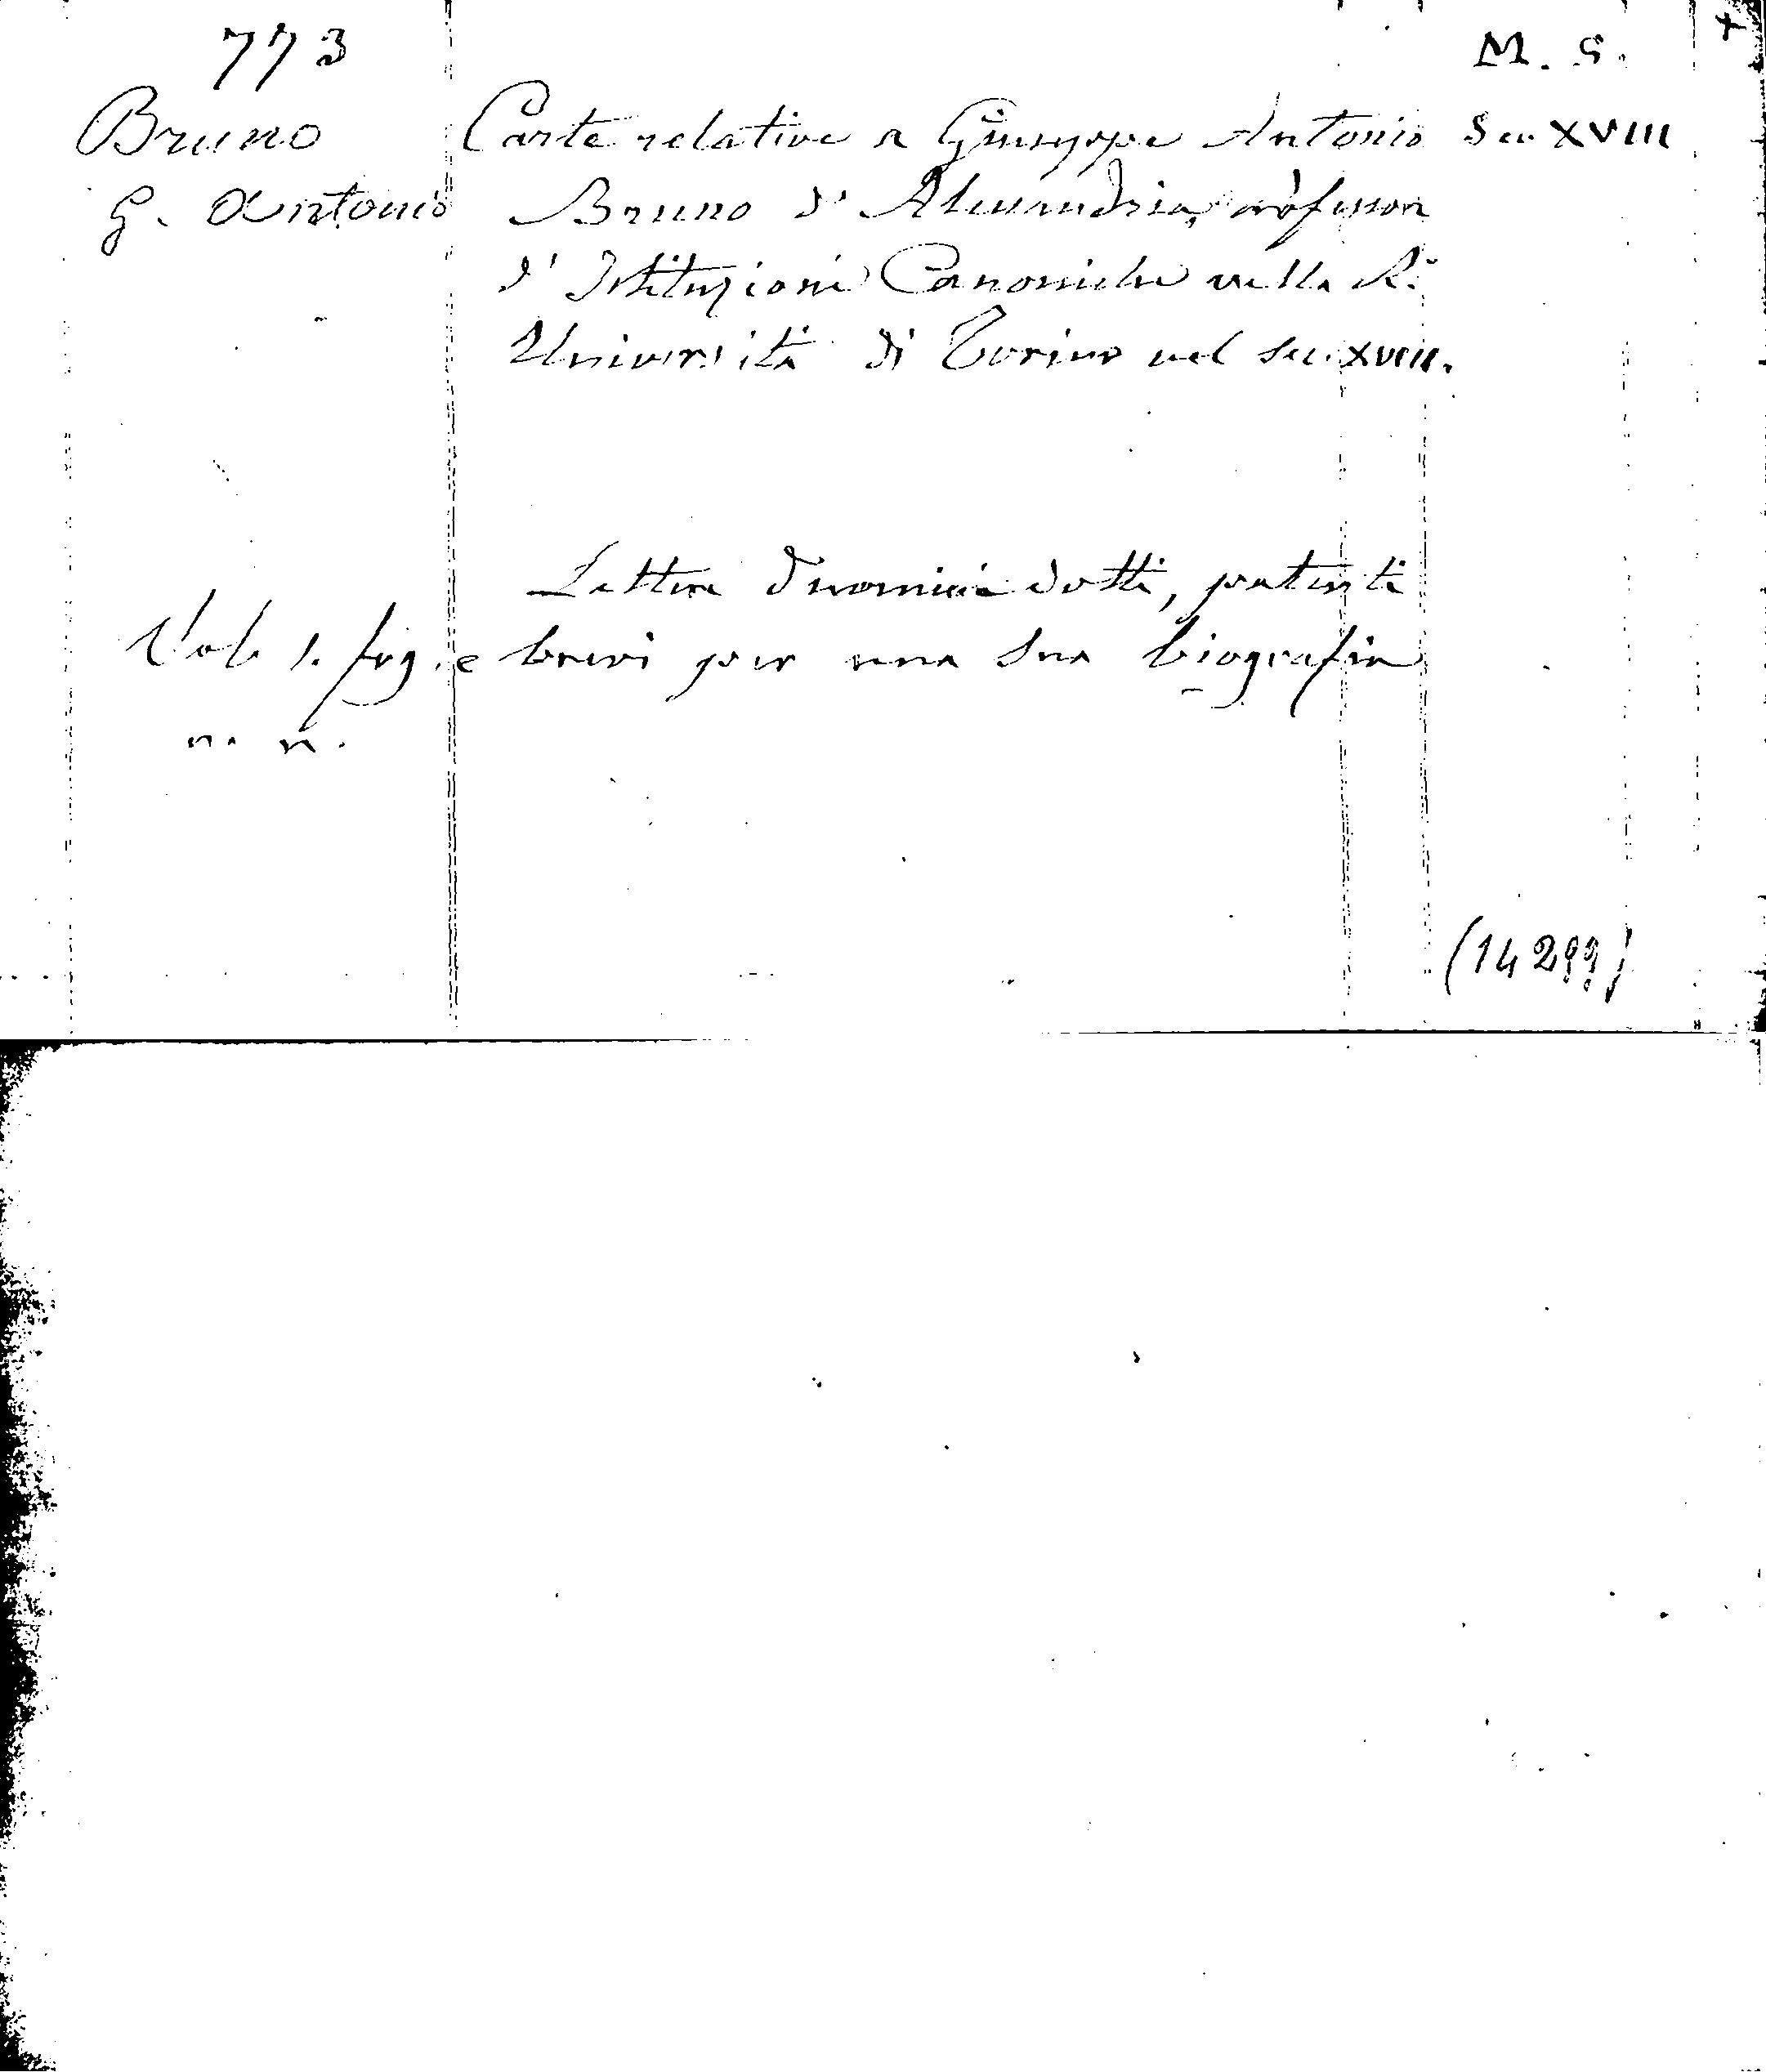 773 M. S.
Bruno Carte relative a Giuseppe Antonio Sec XVIII
G. Antonio Bruno d' Alessandria, professore
d' Istituzioni Canoniche nella R.
Università di Torino nel sec. XVIII.
Lettere d'uomini dotti, patenti
Vol. 1. fog. e brevi per una sua biografia
n. n.
(14299)